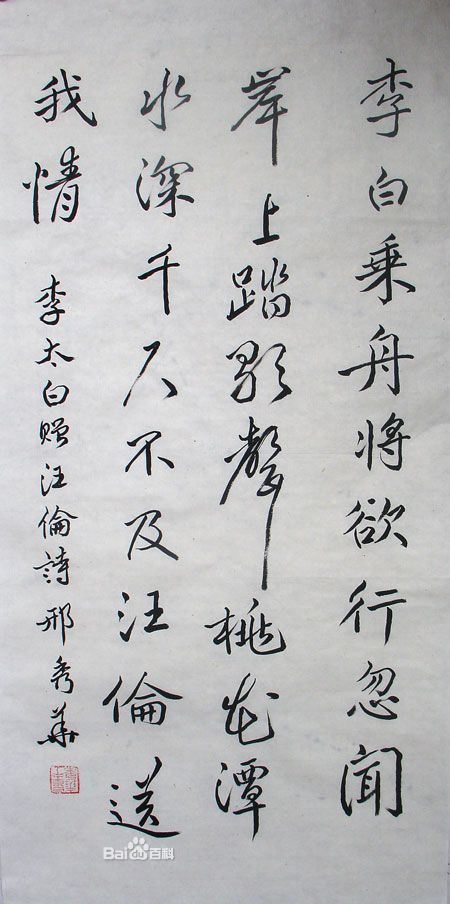 李白乘舟將欲行忽聞
岸上踏歌聲桃花潭
水深千尺不及汪倫送
我情
李太白贈汪倫詩 邢秀華
Bai百科